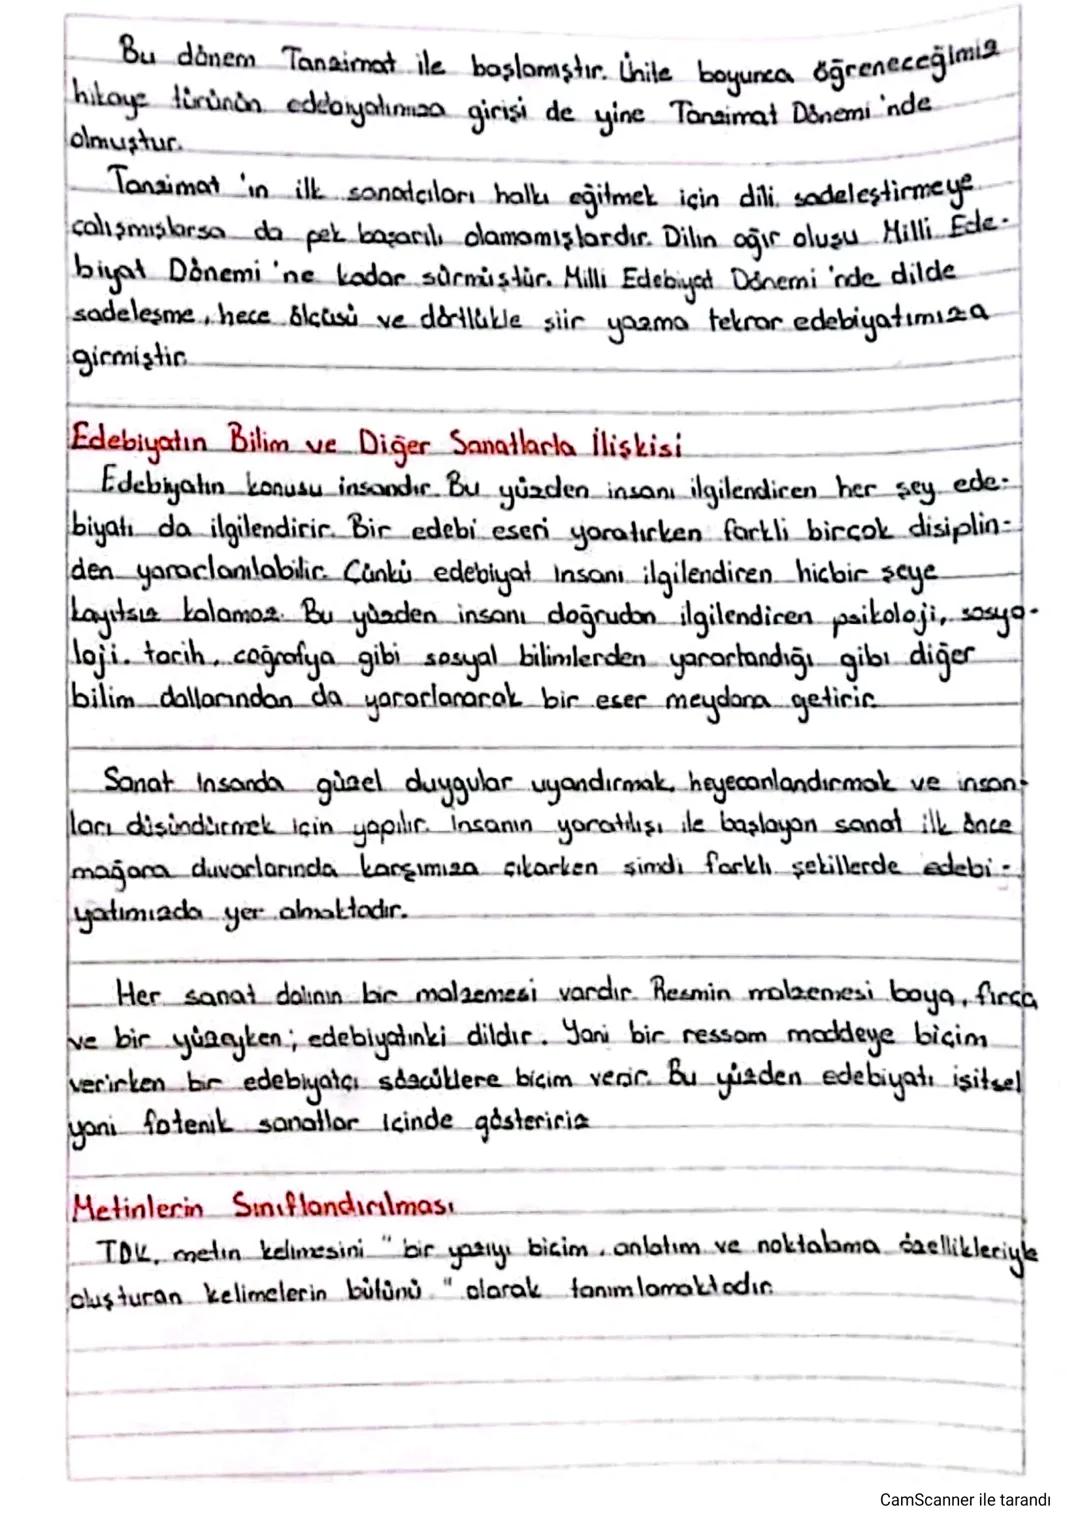 Bu dönem Tanzimat ile başlamıştır. Ünite boyunca öğreneceğimiz
hikaye türünün edebiyatımıza girişi de yine Tanzimat Dönemi'nde
olmuştur.
Tanzimat 'ın ilk sanatçıları halkı eğitmek için dili sadeleştirmeye
çalışmışlarsa da pek başarılı olamamışlardır. Dilin ağır oluşu Milli Ede-
biyat Dönemi'ne kadar sürmüştür. Milli Edebiyat Dönemi'nde dilde
sadeleşme, hece ölçüsü ve dörtlükle şiir yazma tekrar edebiyatımıza
girmiştir.
Edebiyatın Bilim ve Diğer Sanatlarla İlişkisi
Edebiyatın konusu insandır. Bu yüzden insanı ilgilendiren her şey ede-
biyatı da ilgilendirir. Bir edebi eseri yaratırken farklı birçok disiplin-
den yararlanılabilir. Çünkü edebiyat insanı ilgilendiren hiçbir şeye
kayıtsız kalamaz. Bu yüzden insanı doğrudan ilgilendiren psikoloji, sosyo-
loji, tarih, coğrafya gibi sosyal bilimlerden yararlandığı gibi diğer
bilim dallarından da yararlanarak bir eser meydana getirir.
Sanat insanda güzel duygular uyandırmak, heyecanlandırmak ve insan-
ları düşündürmek için yapılır. İnsanın yaratılışı ile başlayan sanat ilk önce
mağara duvarlarında karşımıza çıkarken şimdi farklı şekillerde edebi-
yatımızda yer almaktadır.
Her sanat dalının bir malzemesi vardır. Resmin malzemesi boya, fırça
ve bir yüzeyken; edebiyatınki dildir. Yani bir ressam maddeye biçim
verirken bir edebiyatçı sözcüklere biçim verir. Bu yüzden edebiyatı işitsel
yani fotenik sanatlar içinde gösteririz
Metinlerin Sınıflandırılması
TDK, metin kelimesini " bir yazıyı biçim, anlatım ve noktalama özellikleriyle
oluşturan kelimelerin bütünü " olarak tanımlamaktadır.
CamScanner ile tarandı